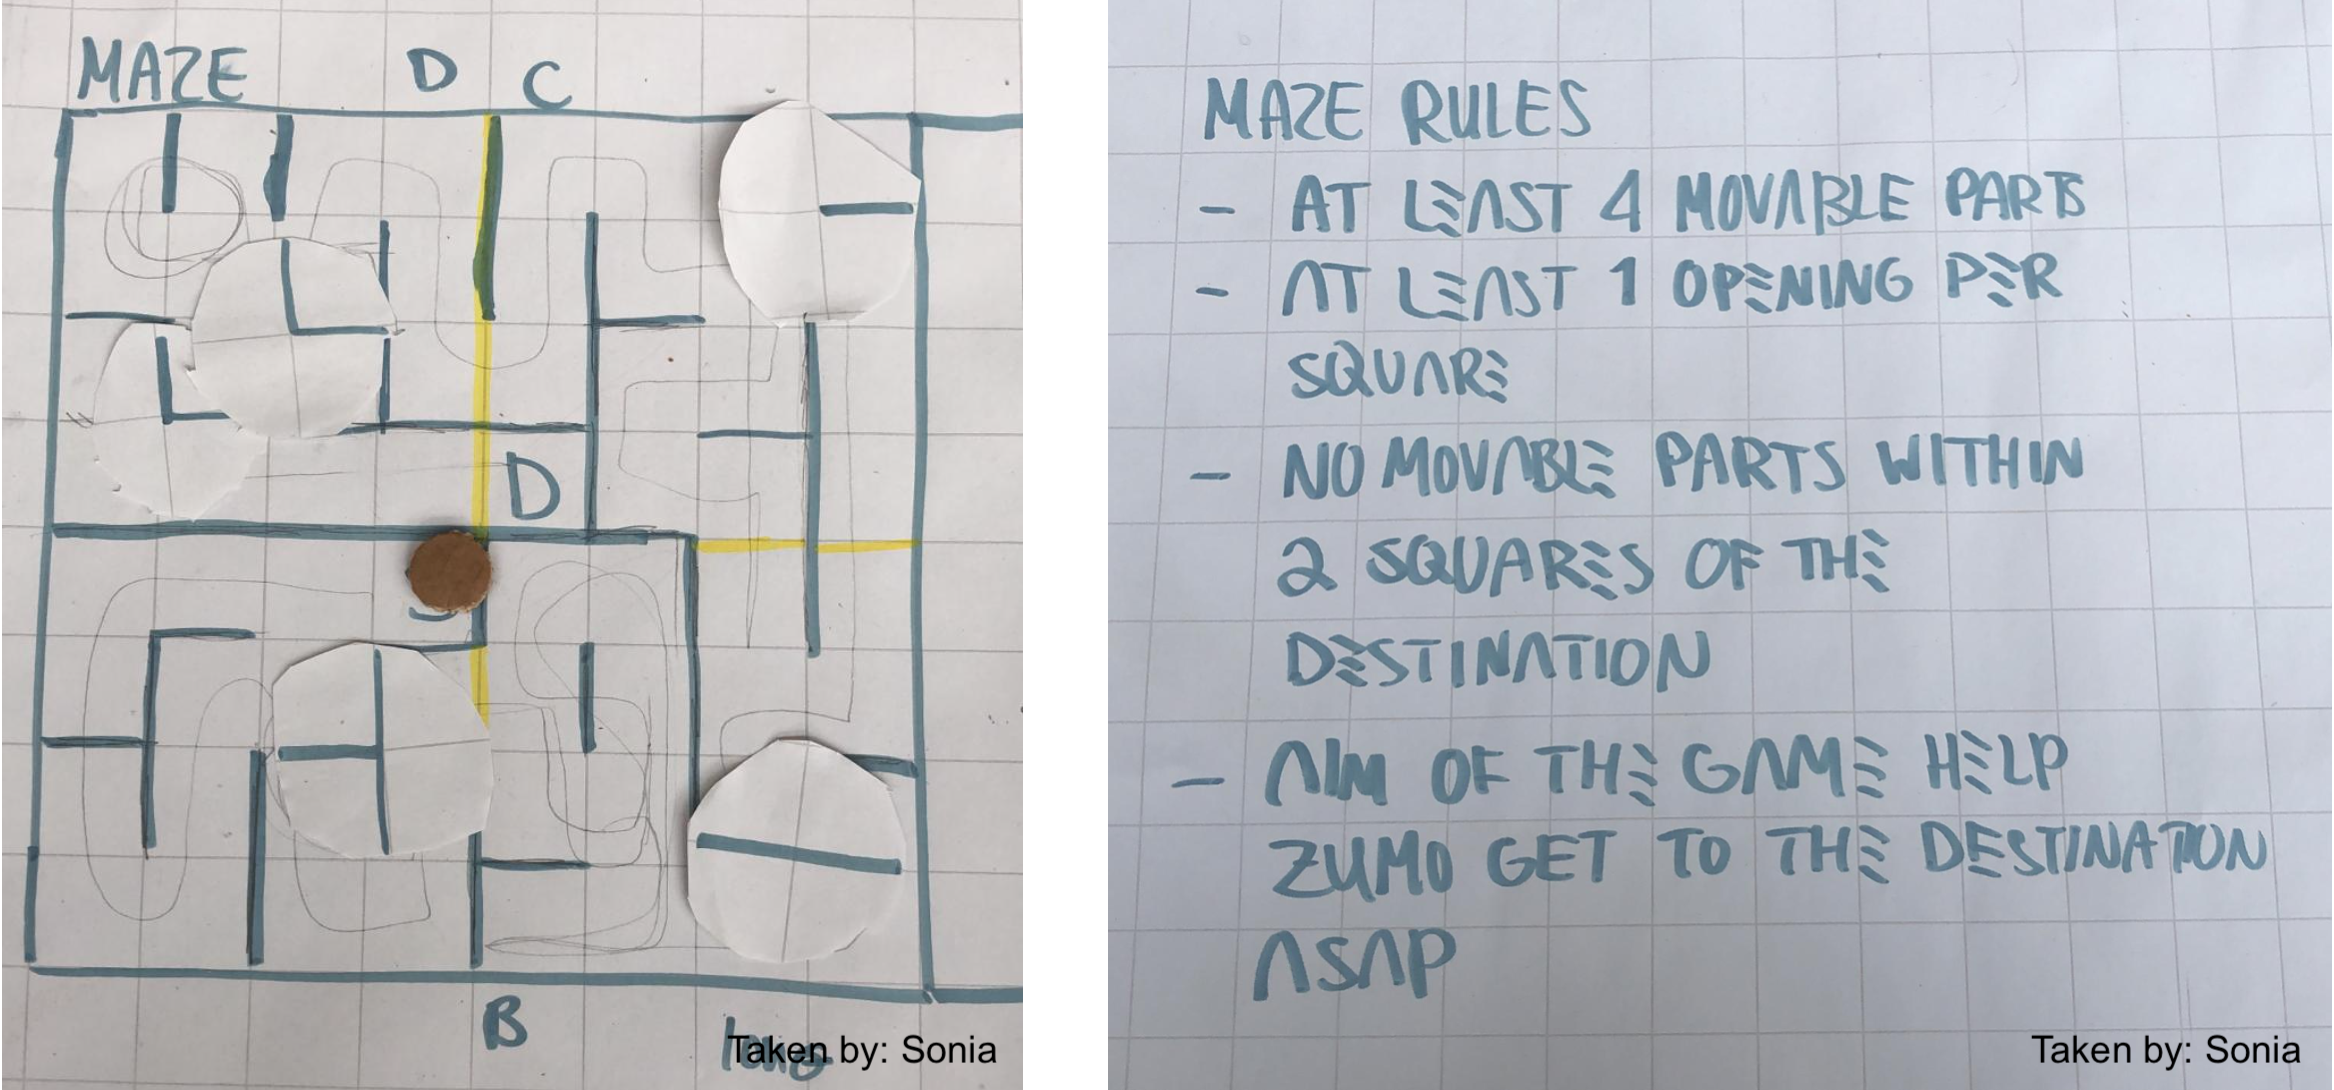 MAZE D C
D
B
Taken by: Sonia
MAZE RULES
- AT LEAST 4 MOVABLE PARTS
- AT LEAST 1 OPENING PER
SQUARE
- NO MOVABLE PARTS WITHIN
2 SQUARES OF THE
DESTINATION
- AIM OF THE GAME HELP
ZUMO GET TO THE DESTINATION
ASAP
Taken by: Sonia